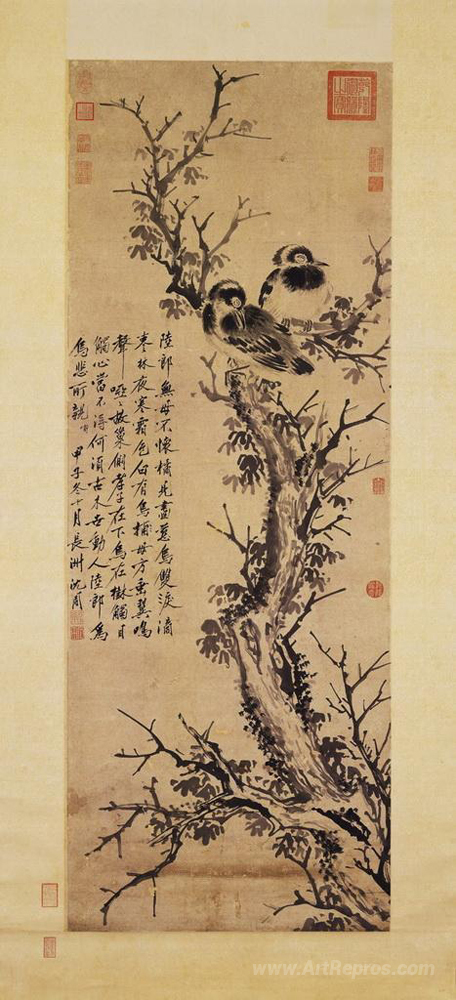 陸郎無母不懷橘見畫慈烏雙淚滴
寒林夜寒霜色白有烏哺母方垂翼鳴
聲啞〻故巢側孝子在下烏在樹觸目
觸心當不得何須古木世動人陸郎為
烏悲所親
甲子冬十月長洲沈周
乾隆御覽之寶
www.ArtRepros.com